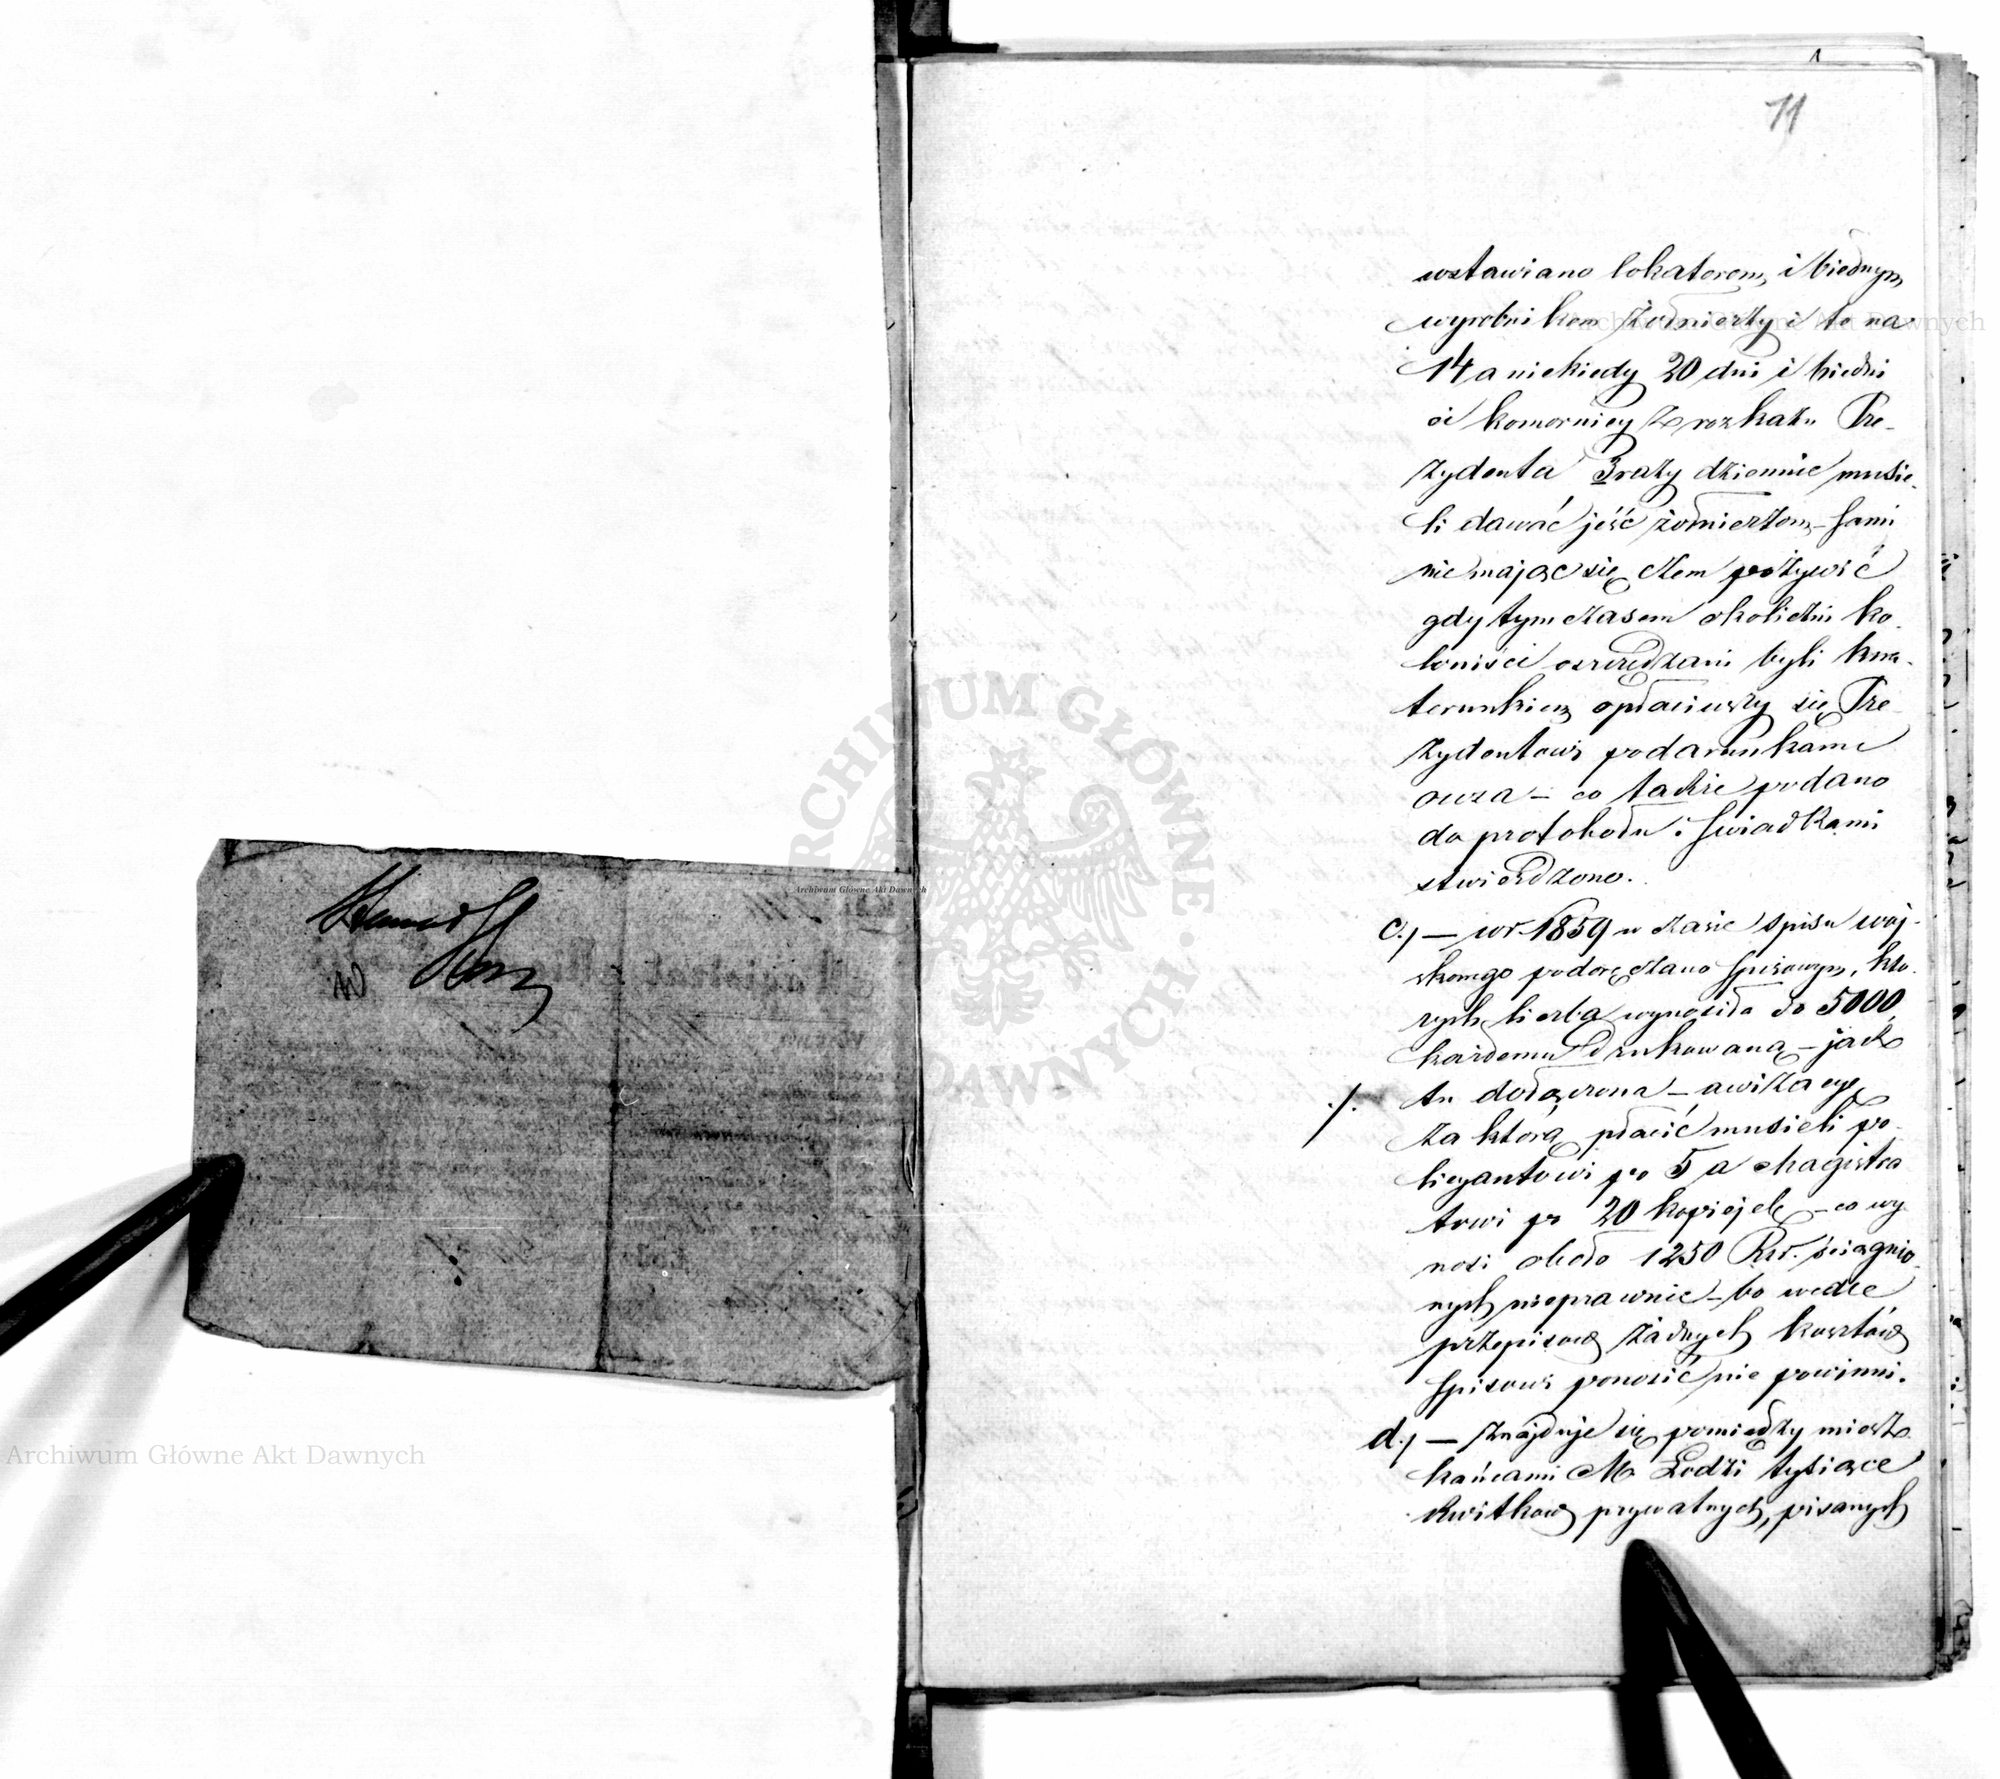 11
wstawiano lokatorom, i biednym
wyrobnikom żołnierzy i to na
14 a niekiedy 20 dni i biedni
ci komornicy z rozkazu Pre-
zydenta 3 razy dziennie musie-
li dawać jeść żołnierzom – sami
nie mając się czem pożywić
gdy tymczasem okoliczni ko-
loniści oszczędzani byli kwa-
terunkiem opłaciwszy się Pre-
zydentowi podarunkami
owsa – co także podano
do protokołu i świadkami
stwierdzono.
c.) — w r 1859 w czasie spisu woj-
skowego podoręczano spisowym, któ-
rych liczba wynosiła do 5000,
każdemu drukowaną – jak
./. tu dołączona – awizacye,
za którą płacić musieli po-
licyantowi po 5 a Magistra-
towi po 20 kopiejek – co wy-
nosi około 1250 Rsr. ściągnio-
nych nieprawnie – bo wedle
przepisów żadnych kosztów
spisowi ponosić nie powinni.
d.) — Znajduje się pomiędzy miesz-
kańcami M. Łodzi tysiące
kwitków prywatnych, pisanych
Magistrat
Archiwum Główne Akt Dawnych
Archiwum Główne Akt Dawnych
Archiwum Główne Akt Dawnych
ARCHIWUM GŁÓWNE AKT DAWNYCH